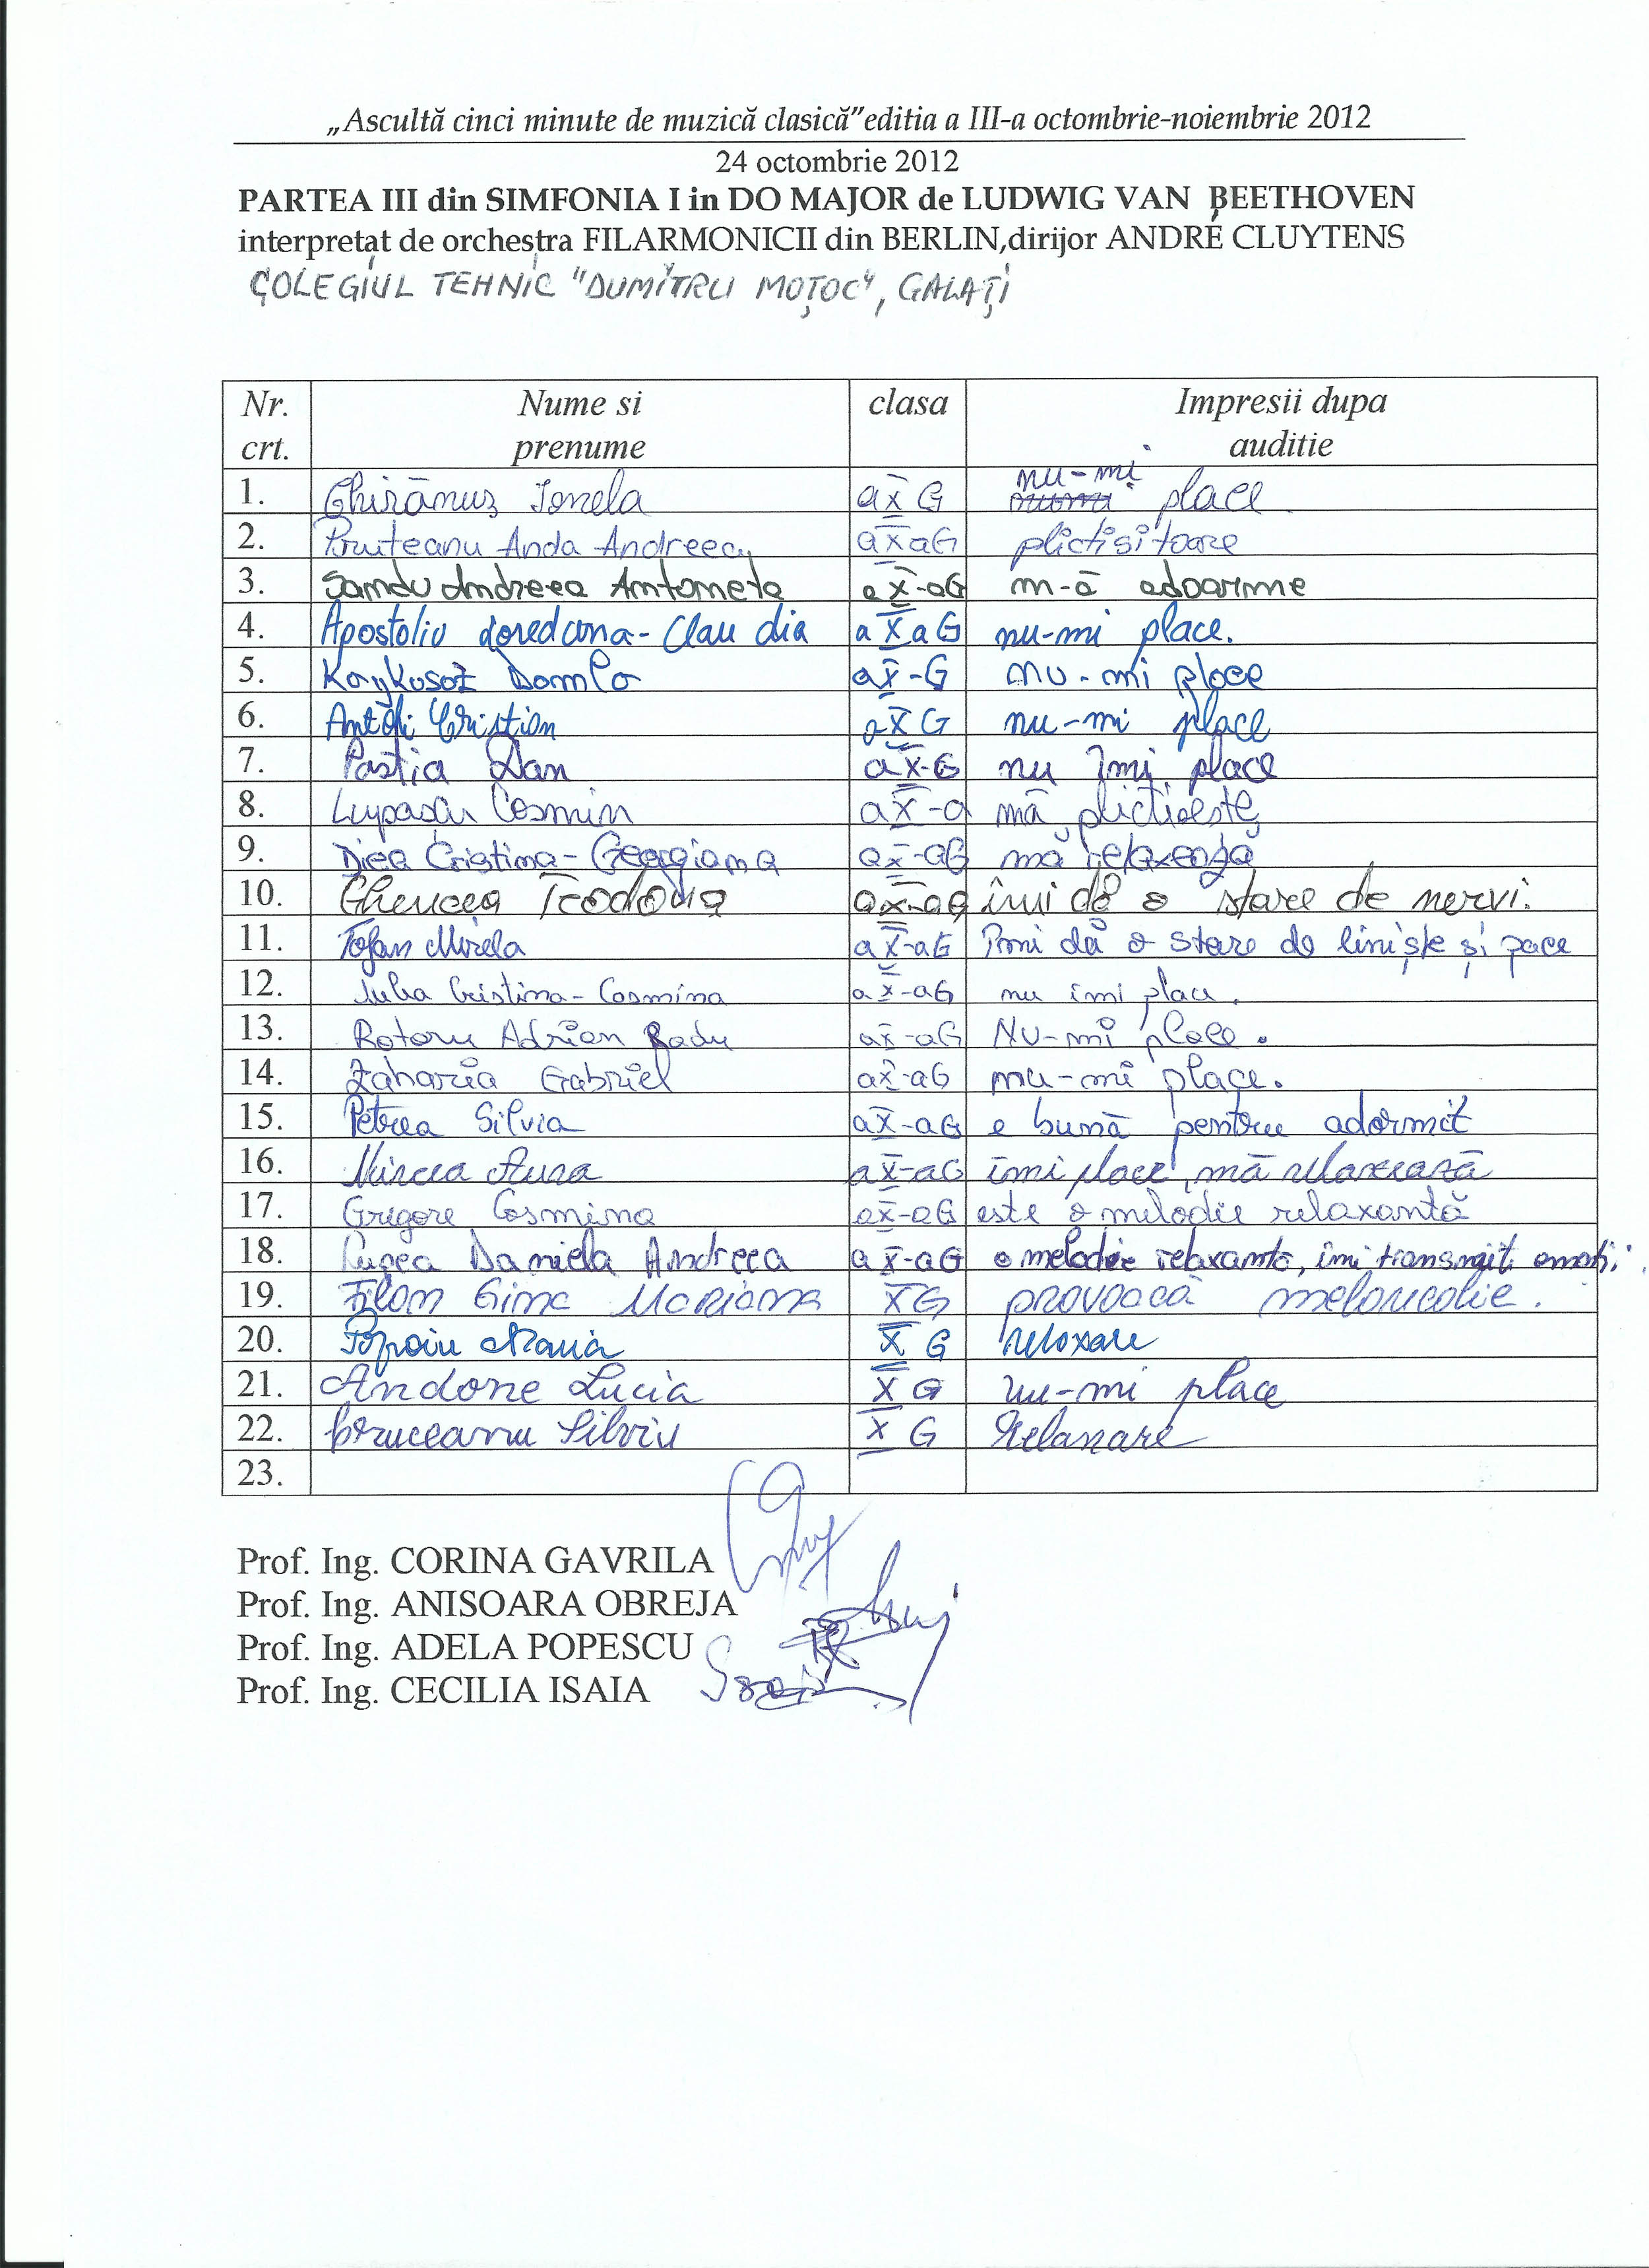 „Ascultă cinci minute de muzică clasică”editia a III-a octombrie-noiembrie 2012
24 octombrie 2012
PARTEA III din SIMFONIA I in DO MAJOR de LUDWIG VAN BEETHOVEN
interpretat de orchestra FILARMONICII din BERLIN,dirijor ANDRÉ CLUYTENS
COLEGIUL TEHNIC "DUMITRU MOȚOC", GALAȚI
Nr. crt. Nume si prenume clasa Impresii dupa auditie
1. Ghirănuș Ionela a X G nu-mi place
2. Pruteanu Anda Andreea a X a G plictisitoare
3. Sandu Andreea Antoneta a X-a G m-ă adoarme
4. Apostoliu Loredana-Claudia a X a G nu-mi place.
5. a X-G nu-mi place
6. Antohi Cristian a X G nu-mi place
7. Pastia Dan a X-G nu îmi place
8. Lupașcu Cosmin a X-a mă plictisește
9. Diea Cristina-Georgiana a X-a G mă relaxează
10. Ghencea Teodora a X-a G îmi dă o stare de nervi.
11. Tofan Mirela a X-a G Îmi dă o stare de liniște și pace
12. Cristina-Cosmina a X-a G nu îmi place.
13. Rotaru Adrian Radu a X-a G Nu-mi place.
14. Zaharia Gabriel a X-a G nu-mi place.
15. Petrea Silvia a X-a G e bună pentru adormit
16. Mircea Aura a X-a G îmi place, mă relaxează
17. Grigore Cosmina a X-a G este o melodie relaxantă
18. Lupea Daniela Andreea a X-a G o melodie relaxantă, îmi transmit emoții
19. Filon Gina Mariana X G provoacă melancolie.
20. Popoiu Maria X G relaxare
21. Andone Lucia X G nu-mi place
22. Silviu X G Relaxare
23.
Prof. Ing. CORINA GAVRILA
Prof. Ing. ANISOARA OBREJA
Prof. Ing. ADELA POPESCU
Prof. Ing. CECILIA ISAIA